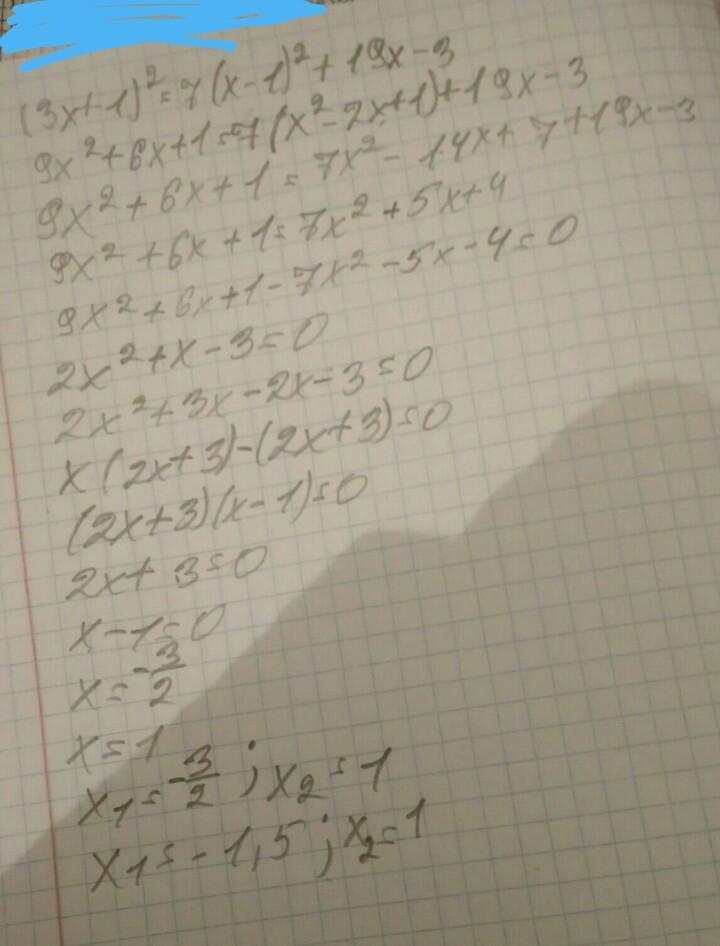 (3x+1)²=7(x-1)²+19x-3
9x²+6x+1=7(x²-2x+1)+19x-3
9x²+6x+1=7x²-14x+7+19x-3
9x²+6x+1=7x²+5x+4
9x²+6x+1-7x²-5x-4=0
2x²+x-3=0
2x²+3x-2x-3=0
x(2x+3)-(2x+3)=0
(2x+3)(x-1)=0
2x+3=0
x-1=0
x=-3/2
x=1
x₁=-3/2; x₂=1
x₁=-1,5; x₂=1